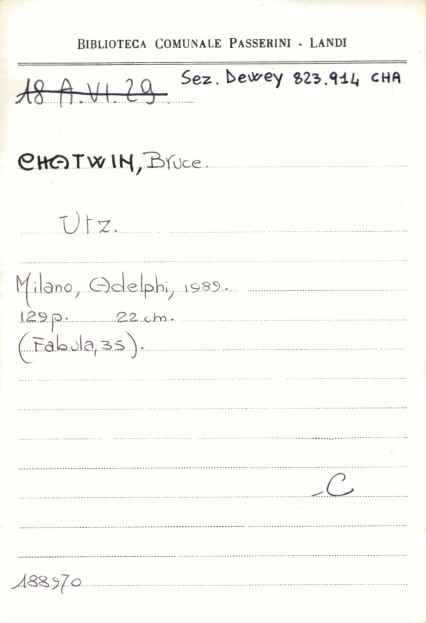 BIBLIOTECA COMUNALE PASSERINI - LANDI
18 A.VI.29 Sez. Dewey 823.914 CHA
CHATWIN, Bruce.
Utz.
Milano, Adelphi, 1989.
129 p. 22 cm.
(Fabula, 35).
C
188970